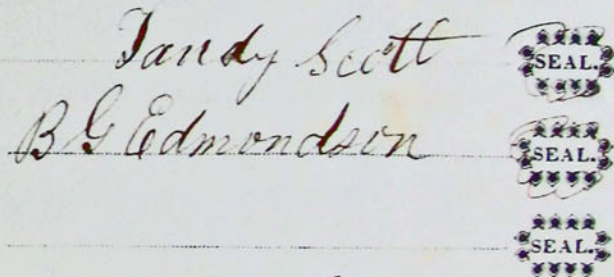 Tandy Scott SEAL.
B G Edmondson SEAL.
SEAL.